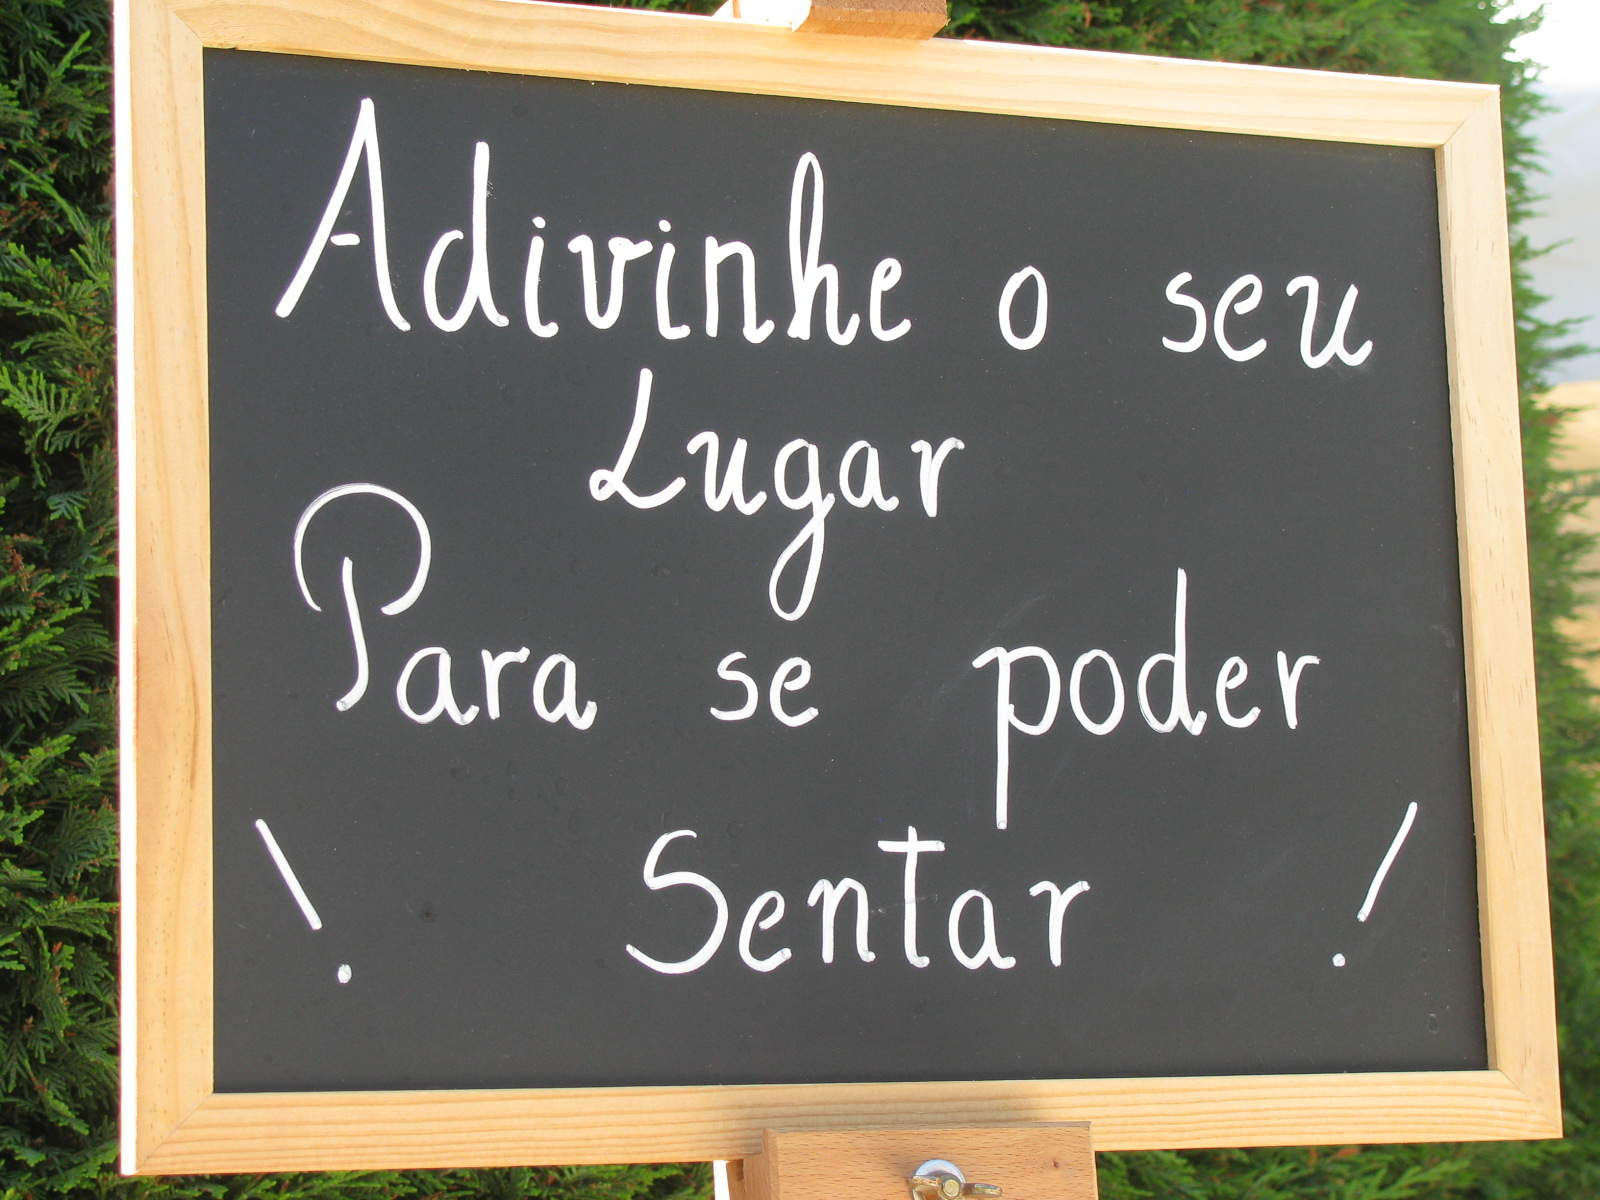 Adivinhe o seu
Lugar
Para se poder
! Sentar !